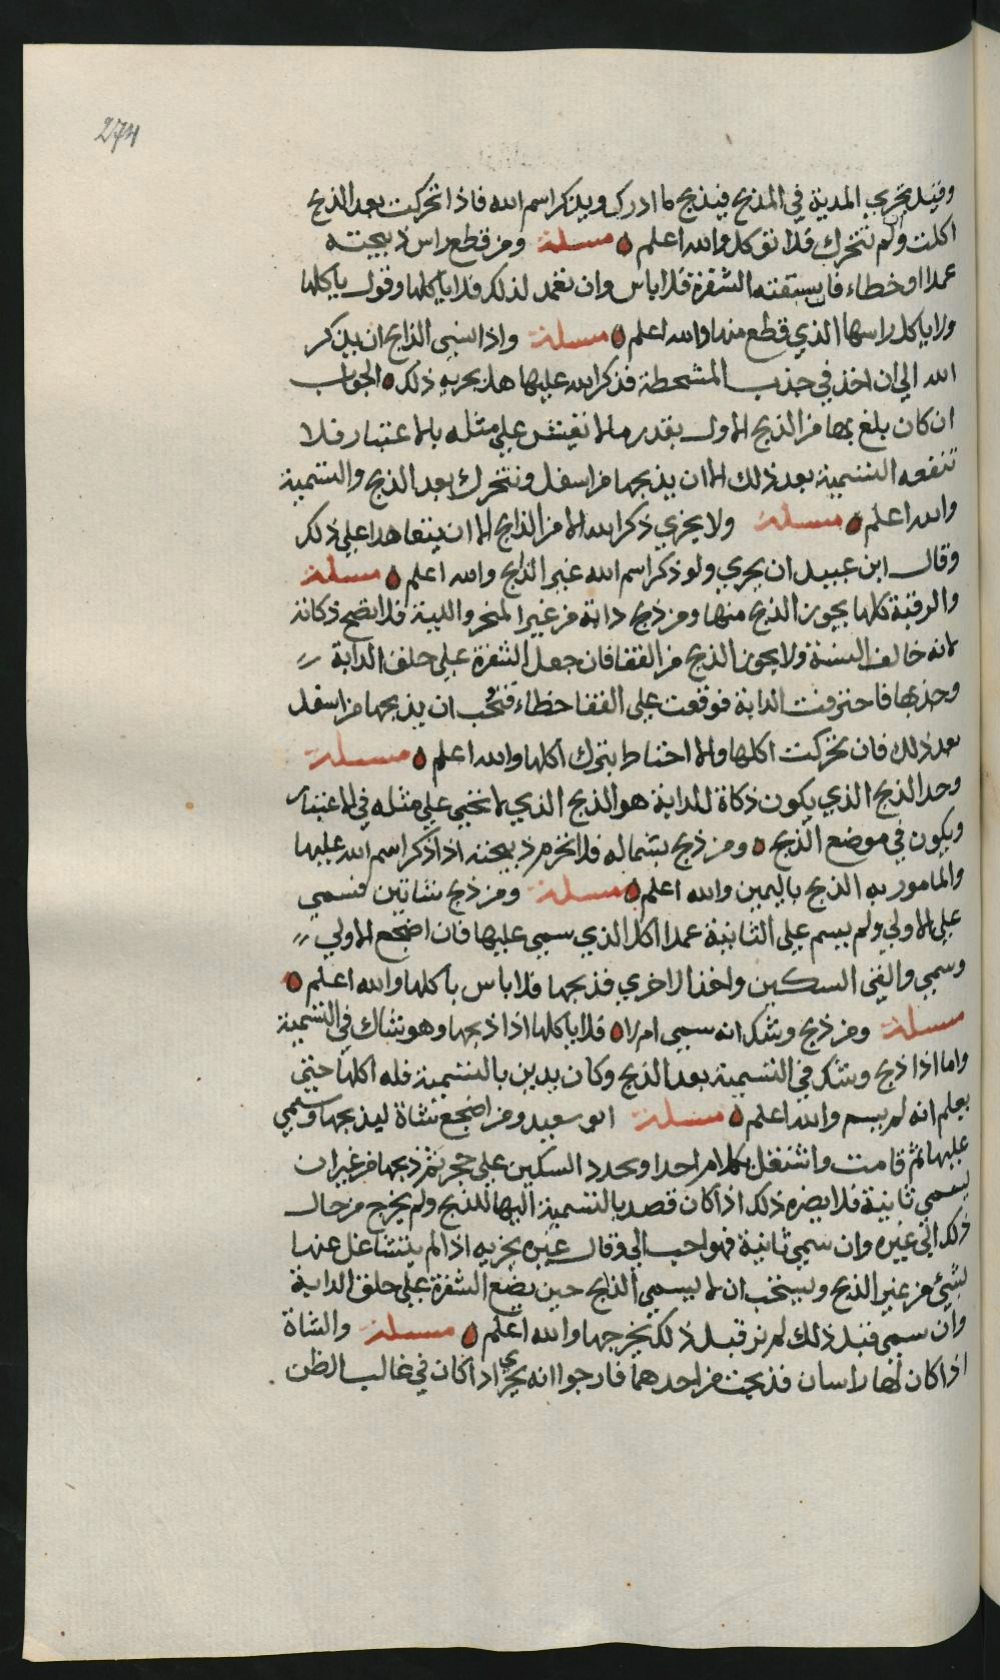 274
وقيل يجري المدية في المذبح فيذبح ما ادرك ويذكر اسم الله فاذا تحركت بعد الذبح
اكلت وان لم تتحرك فلا تؤكل والله اعلم مسلة ومن قطع راس ذبيحته
عمدا او خطاء فان سبقته الشفرة فلا باس وان تعمد لذلك فلا ياكلها وقول ياكلها
ولا ياكل راسها الذي قطع منها والله اعلم مسلة واذا نسي الذابح ان يذكر
الله الي ان اخذ في جذب المشحطة فذكر الله عليها هل يجزيه ذلك الجواب
ان كان بلغ بها من الذبح الاول بقدر ما لا تعيش علي مثله بالاعتبار فلا
تنفعه التسمية بعد ذلك الا ان يذبحها من اسفل وتتحرك بعد الذبح والتسمية
والله اعلم مسلة ولا يجزي ذكر الله الا من الذابح الا ان يتعاهدا علي ذلك
وقال ابن عبيدان يجزي ولو ذكر اسم الله غير الذابح والله اعلم مسلة
والرقبة كلها يجوز الذبح منها ومن ذبح دابة من غير المنحر واللبة فلا تصح ذكاته
لانه خالف السنة ولا يجوز الذبح من القفا فان جعل الشفرة علي حلق الدابة
وجذبها فاحترفت الدابة فوقعت علي القفا خطاء فنحب ان يذبحها من اسفل
بعد ذلك فان تحركت اكلها والا احتاط بترك اكلها والله اعلم مسلة
وحد الذبح الذي يكون ذكاة للدابة هو الذبح الذي لا تحيي علي مثله في الاعتبار
ويكون في موضع الذبح ومن ذبح بشماله فلا تحرم ذبيحته اذا ذكر اسم الله عليها
والمامور به الذبح باليمين والله اعلم مسلة ومن ذبح شاتين فسمي
علي الاولي ولم يسم علي الثانية عمدا اكل الذي سمي عليها فان اضجع الاولي
وسمي والقي السكين واخذ الاخري فذبحها فلا باس باكلها والله اعلم
مسلة ومن ذبح وشك انه سمي ام لا فلا ياكلها اذا ذبحها وهو شاك في التسمية
واما اذا ذبح وشك في التسمية بعد الذبح وكان يدين بالتسمية فله اكلها حتي
يعلم انه لم يسم والله اعلم مسلة ابو سعيد ومن اضجع شاة ليذبحها وسمي
عليها ثم قامت واشتغل بكلام احد او يحدد السكين علي حجر ثم ذبحها من غير ان
يسمي ثانية فلا يضره ذلك اذا كان قصد بالتسمية اليها للذبح ولم يخرج من حال
ذلك الي غيره وان سمي ثانية فهو احب الي وقال غيره يجزيه اذا لم يتشاغل عنها
بشيء من غير الذبح ويستحب ان لا يسمي الذابح حين يضع الشفرة علي حلق الدابة
وان سمي قبل ذلك لم نر قبل ذلك يخرجها والله اعلم مسلة والشاة
اذا كان لها راسان فذبحت من احدهما فارجوا انه يجزي اذا كان في غالب الظن